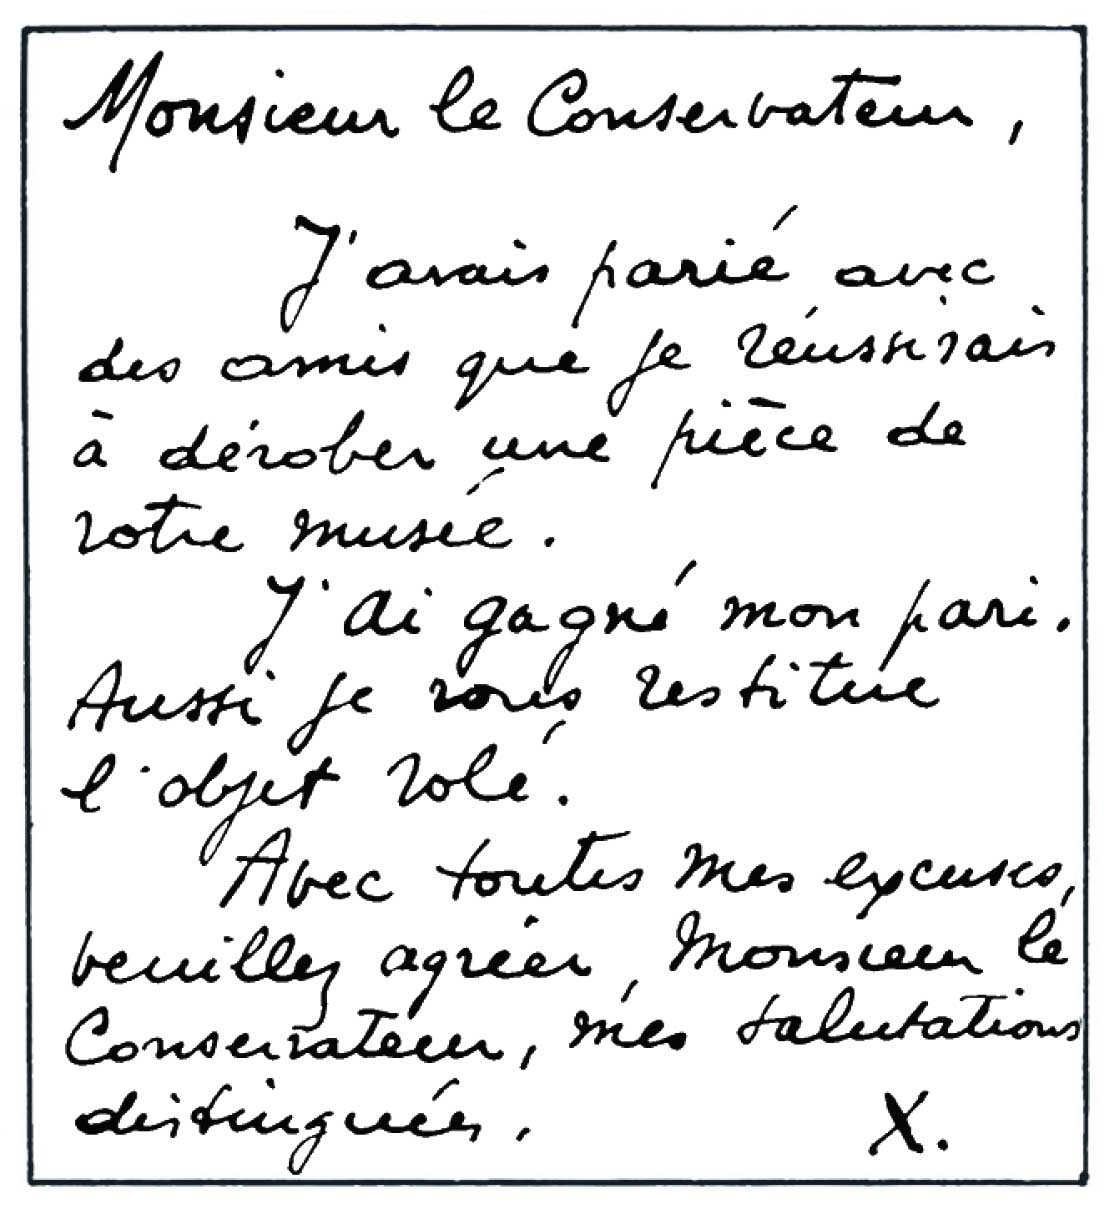 Monsieur le Conservateur,
J'avais parié avec
des amis que je réussirais
à dérober une pièce de
votre musée.
J'ai gagné mon pari.
Aussi je vous restitue
l'objet volé.
Avec toutes mes excuses,
veuillez agréer, Monsieur le
Conservateur, mes salutations
distinguées.
X.